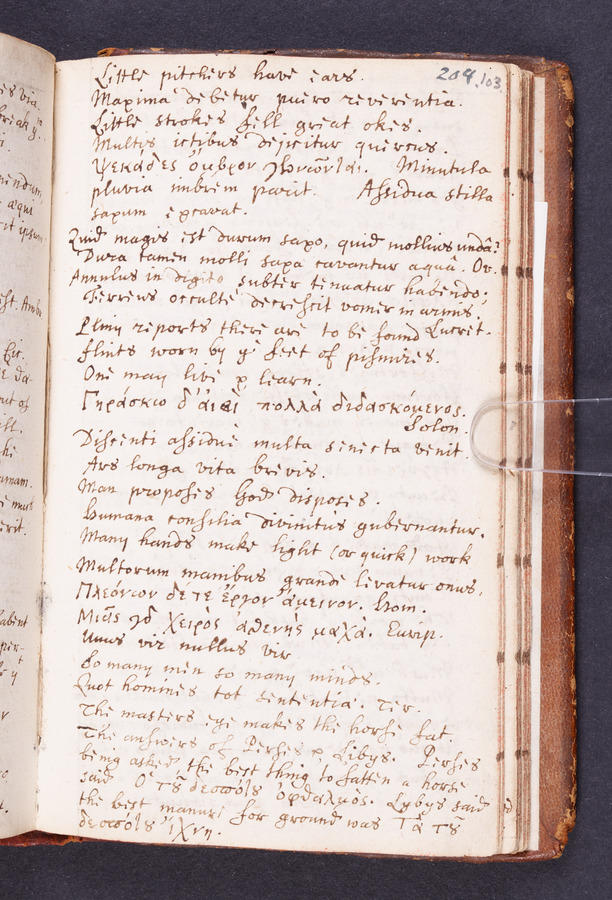 204. 103
Little pitchers have ears.
Maxima debetur puero reverentia.
Little strokes fell great okes.
Multis ictibus dejicitur quercus.
Ψεκάδες ὄμβρον γεννῶνται. Minutula
pluvia imbrem parit. Assidua stilla
saxum excavat.
Quid magis est durum saxo, quid mollius undâ?
Dura tamen molli saxa cavantur aquâ. Ov.
Annulus in digito subter tenuatur habendo;
Ferreus occulte decrescit vomer in arvis.
Pliny reports there are to be found Lucret.
flints worn by yͤ feet of pismires.
One may live & learn.
Γηράσκω δ' ἀιεὶ πολλὰ διδασκόμενος.
Solon.
Discenti assidue multa senecta venit.
Ars longa vita brevis.
Man proposes God disposes
Humana consilia divinitus gubernantur.
Many hands make light (or quick) work
Multorum manibus grande levatur onus.
Πλεόνων δε τε ἔργον ἄμεινον. Hom.
Μιᾶς γὸ χειρὸς ἀσθενὴς μαχὰ. Eurip.
Unus vir nullus vir
So many men so many minds.
Quot homines tot sententiæ. Ter.
The masters eye makes the horse fat.
The answers of Perses & Libys. Perses
being asked the best thing to fatten a horse
said Ὁ τȣ͂ δεσπότȣ ὀφθαλμός. Lybys said
the best manure for ground was Τὰ τȣ͂
δεσπότȣ ἴχνη.